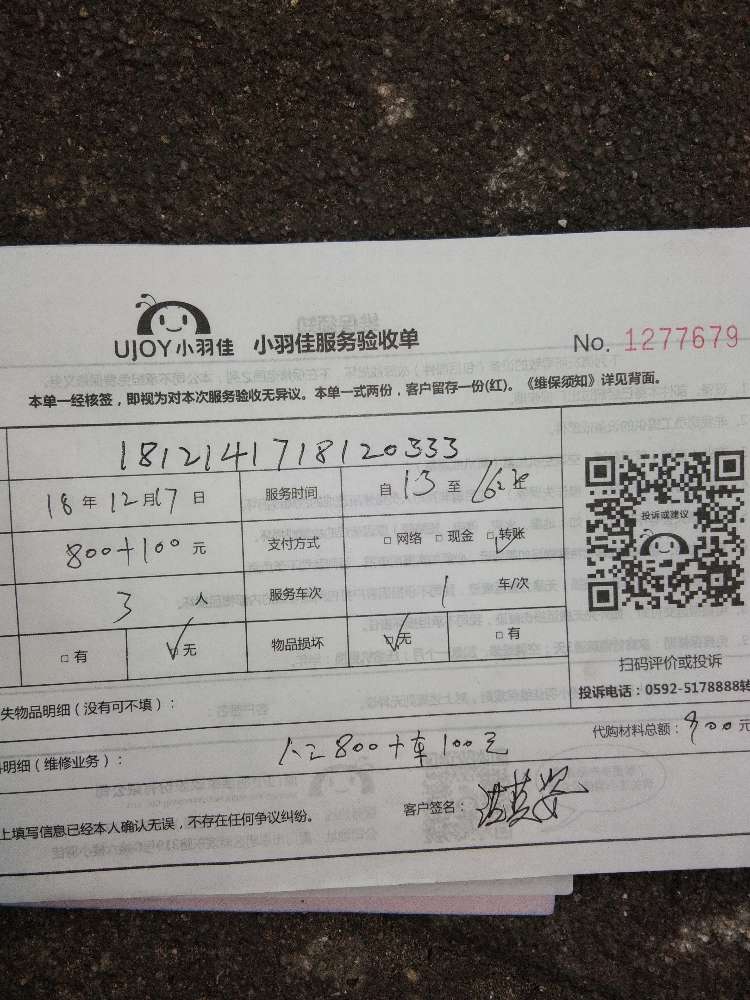 UJOY小羽佳 小羽佳服务验收单 No. 1277679
本单一经核签，即视为对本次服务验收无异议。本单一式两份，客户留存一份(红)。《维保须知》详见背面。
1812141718120333
18年12月17日 服务时间 自13至
800+100元 支付方式 □网络 □现金 □转账
3人 服务车次 1车/次
□有 □无 物品损坏 □无 □有
投诉或建议
扫码评价或投诉
投诉电话：0592-5178888转
失物品明细（没有可不填）：
代购材料总额：900元
明细（维修业务）： 人工800+车100元
客户签名：
上填写信息已经本人确认无误，不存在任何争议纠纷。